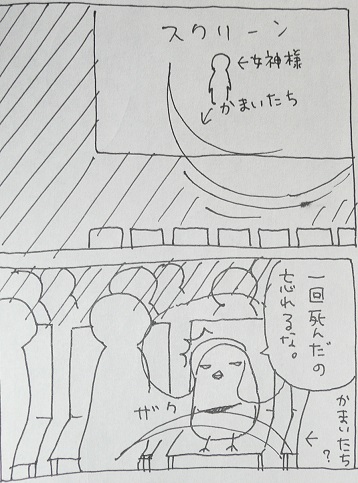 スクリーン
←女神様
かまいたち
一回死んだの
忘れるな。
ザク
かまいたち
?